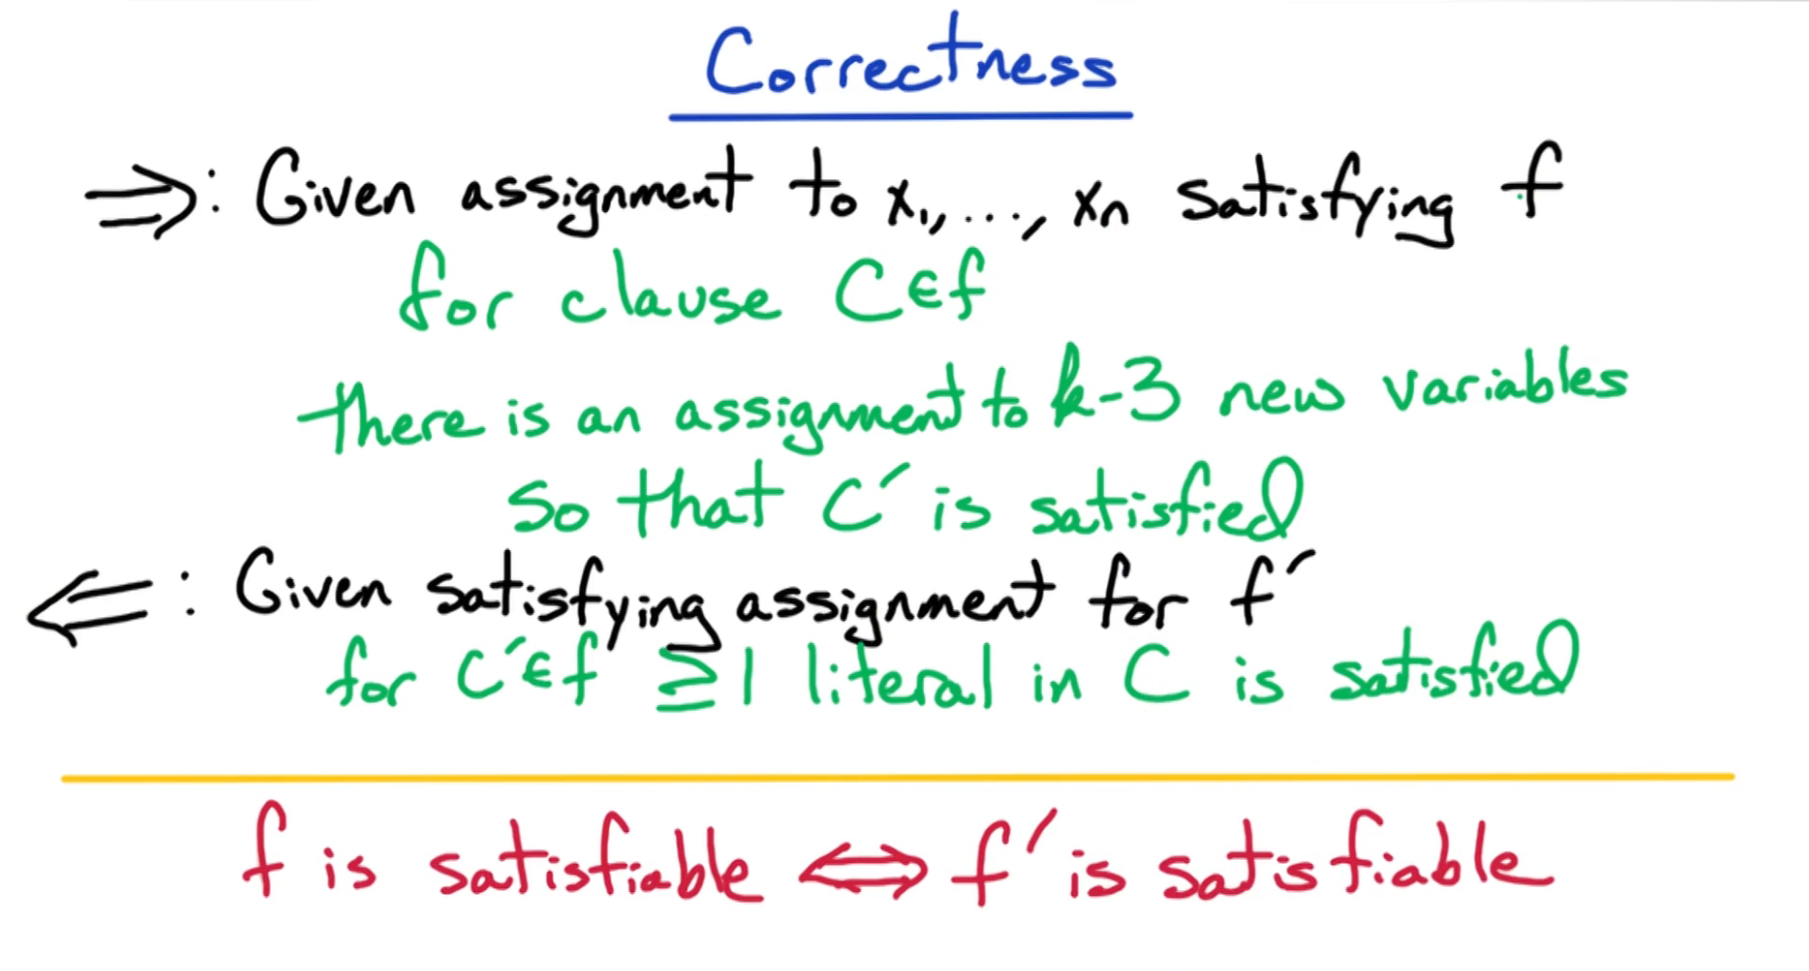 Correctness
⇒: Given assignment to x₁, ..., xₙ satisfying f
for clause C∈f
there is an assignment to k-3 new variables
so that C′ is satisfied
⇐: Given satisfying assignment for f′
for C′∈f ≥1 literal in C is satisfied
f is satisfiable ⇔ f′ is satisfiable